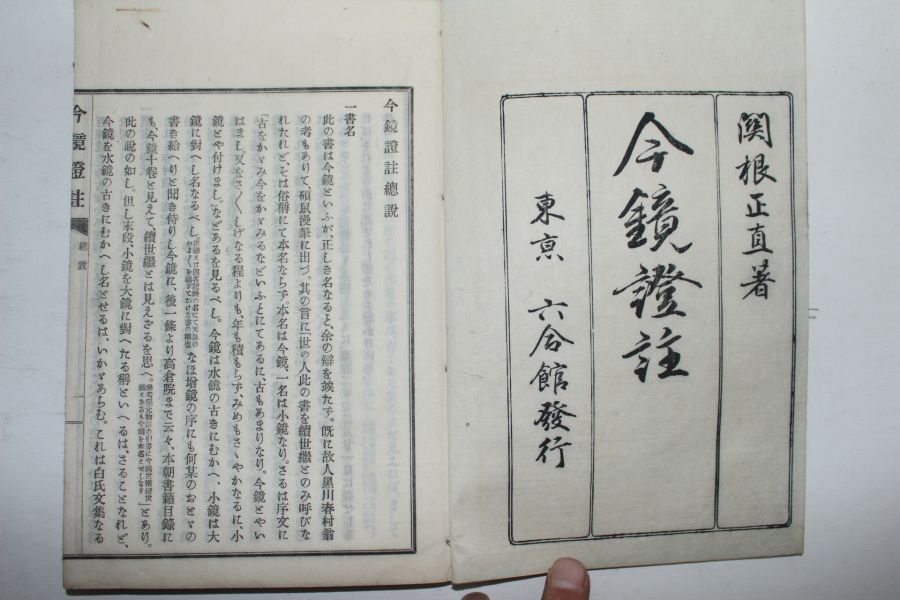 関根正直著
今鏡證註
東京 六合館發行
今鏡證註總説
一書名
此の書は今鏡といふが、正しき名なると、余の辯を竢たず。既に故人黒川春村翁
の考もありて、碩鼠漫筆に出づ。其の言に「世の人此の書を續世繼とのみ呼びな
れたれど、そは俗稱にて本名ならず。本名は今鏡、一名は小鏡なり。さるは序文に
「古をかゞみ今をかゞみるなどいふとにてあるに古もあまりなり。今鏡とやい
はまし、又をさ〳〵しげなる程よりも、年も積もらず、みめもさゝやかなるに、小
鏡とや付けまし。」などあるを見るべし。今鏡は水鏡の古きにむかへ、小鏡は大
鏡に對へし名なるべし。なほ増鏡の序にも何某のおとゞの
書き給へりと聞き侍りし今鏡に、後一條より高倉院まで云々、本朝書籍目録に
も、今鏡十卷と見えて、續世繼とは見えざるを思へ。」とあり。
此の説の如し。但し末段、小鏡を大鏡に對へたる稱といへるは、さることなれど、
今鏡を水鏡の古きにむかへし名とせるは、いかゞあらむ。これは白氏文集なる
今鏡證註
總説